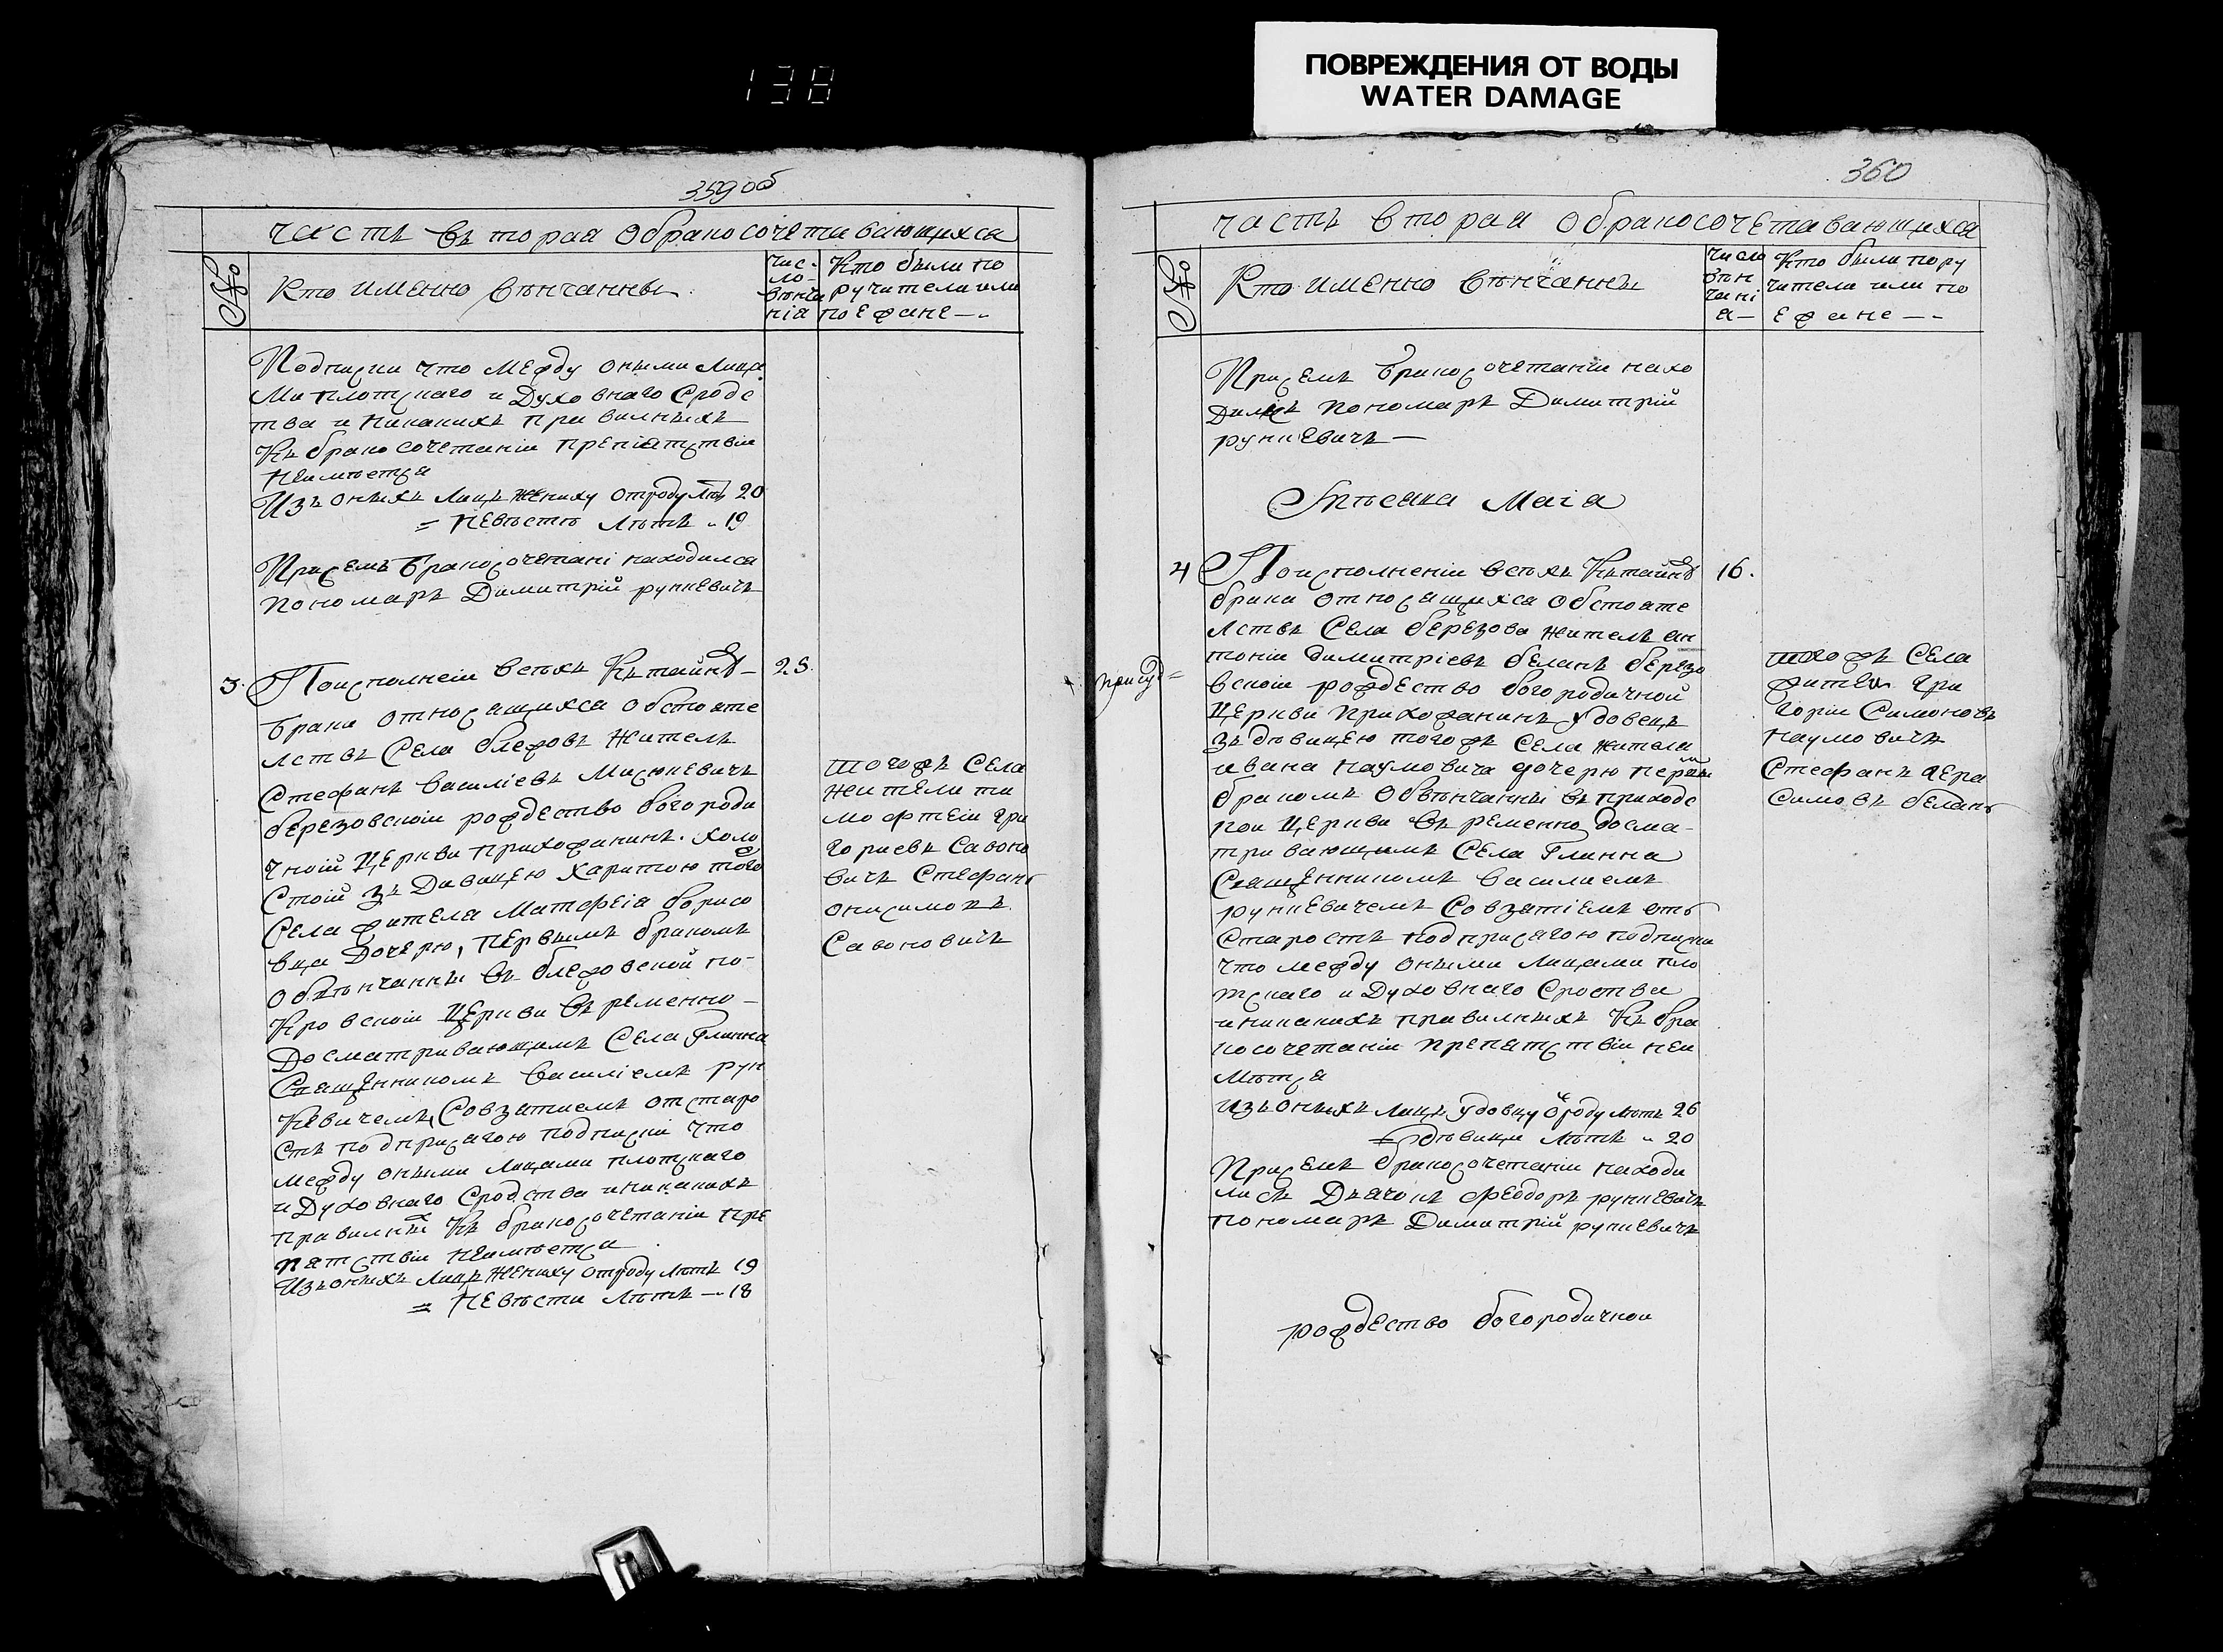 138
ПОВРЕЖДЕНИЯ ОТ ВОДЫ
WATER DAMAGE
359 об
часть въторая о бракосочетавающихся
№
Кто именно венчанны
чис-
ло-
венча
нія
Кто были по
ручители или
поежане —
Подписки что между оными лица
ми плотскаго и духовнаго сродс
тва и никакихъ правилныхъ
къ бракосочетанію препіятствіи
неиметца
Изъ оныхъ лицъ жениху отроду летъ 20
= невесте летъ " 19
Присемъ бракосочетані находился
пономаръ Димитрій рункевичъ
3.
Поисполнеіи всехъ къ тайне
брака относящихся обстояте
лствъ села блежовъ житель
Стефанъ василіевъ Мисюкевичъ
березовскои рождество богороди
чной церкви прихожанинъ. холо
стой зъ девицею харитою того
села жителя Матфеіа борисо
вца дочерю, первымъ бракомъ
обвенчанны въ блежовской по-
кровской церкви въременно
досматривающимъ села Глинна
Священникомъ василіемъ рун
кевичемъ, совзятиемъ отстаро
стъ подприсягою подписки что
между оными лицами плотскаго
и духовнаго сродства иникакихъ
правилныхъ къ бракосочетанію пре
пятствіи неиметца
Изъ оныхъ лицъ жениху отроду летъ 19
= невести летъ — 18
25.
тогожъ села
жители ти
мофтеіи гри
гориевъ Савоно
вичъ Стефанъ
онисимовъ
Савоновичъ
360
часть вторая о бракосочетавающихся
№
Кто именно венчанны
число
вен
чані
я —
Кто были пору
чители или по
ежане —
Присемъ бракосочетаніи нахо
дился пономаръ Димитрій
рункевичъ —
Месяца Маіа
4
Поисполненіи всехъ къ тайне
брака относящихся обстояте
лствъ села березова жителъ ан
тоніи димитріевъ беланъ березо
вскоіи рождество богородичной
церкви прихожанинъ удовецъ
зъ девицею тогожъ села жителя
ивана наумовича дочерю первым
бракомъ обвенчанны въ приходс
кои церкви въременно досма-
тривающимъ села Глинна
Священникомъ василиемъ
рункевичемъ совзятіемъ отъ
старостъ подприсягою подписки
что между оными лицами пло
тскаго и духовнаго сроства
иникакихъ правилныхъ къ бра
косочетаніи препатствіи неи
метца
изъ оныхъ лицъ удовцу отроду летъ 26
= девици летъ " 20
Присемъ бракосочетаніи находи
лисъ дъячокъ феодоръ рункевичъ
пономаръ Димитрій рункевичъ
рождество богородичнои
16.
тогожъ села
жители гри
гории Симоновъ
наумовичъ
Стефанъ гера
симовъ беланъ